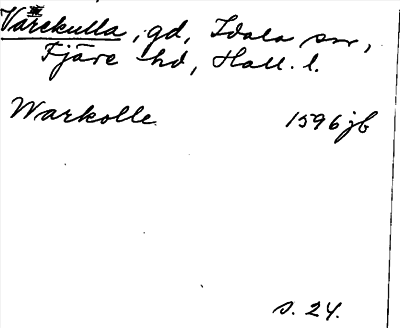 Varekulla, gd, Idala sn,
Fjäre hd, Hall. l.
Warkolle 1596 jb
s. 24.